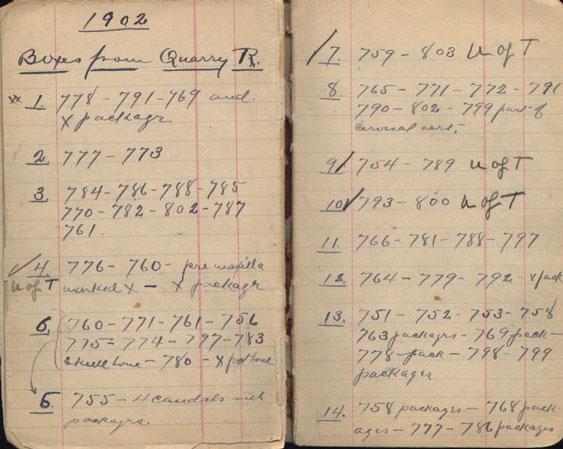 1902
Boxes from Quarry R.
xx 1 778 - 791 - 769 and
X package
2 777 - 773
3 784 - 786 - 788 - 785
770 - 782 - 802 - 787
761.
✓ 4 776 - 760 - pre maxilla
U of T marked X - X package
6 760 - 771 - 761 - 756
775 = 774 - 797 - 783
Skull bone - 780 - X
5. 755 - 4 caudals with
packages.
/7 759 - 803 U of T
8. 765 - 771 - 772 - 791
790 - 802 - 799 part of
cervical vert.
9/ 754 - 789 U of T
10✓ 793 - 800 U of T
11. 766 - 781 - 788 - 797
12. 764 - 779 - 792 - x pack
13. 751 - 752 - 753 - 758
763 packages - 769 pack -
778 - pack - 798 - 799
packages
14. 758 packages - 768 pack-
ages - 777 - 786 packages